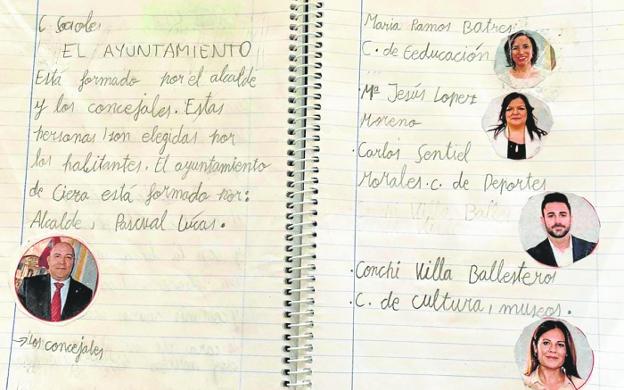 C Sociales
EL AYUNTAMIENTO
Está formado por el alcalde
y los concejales. Estas
personas son elegidas por
los habitantes. El ayuntamiento
de Cieza está formado por:
Alcalde, Pascual Lucas.
→ Los concejales
María Ramos
C. de Eeducación
. Mª Jesús Lopez
Moreno
. Carlos Sentiel
Morales. C. de Deportes
Villa Balles
. Conchi Villa Ballesteros
. C. de cultura, museos.